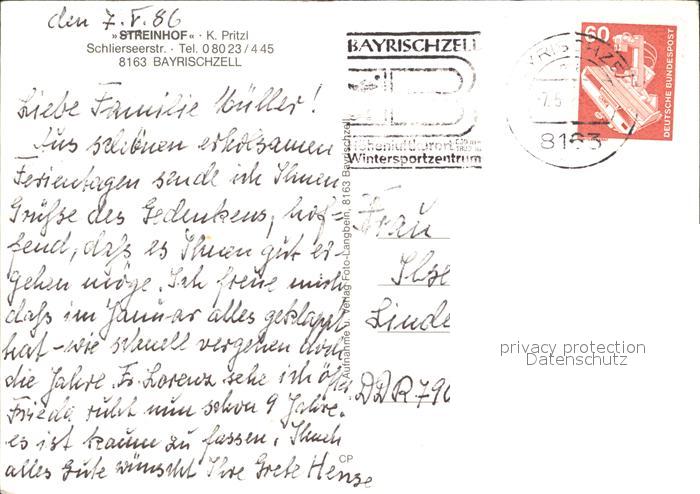 den 7.V.86
»STREINHOF« · K. Pritzl
Schlierseerstr. · Tel. 0 80 23 / 4 45
8163 BAYRISCHZELL
Liebe Familie Müller!
Aus schönen erholsamen
Ferientagen sende ich Ihnen
Grüße des Gedenkens, hof-
fend, daß es Ihnen gut er-
gehen möge. Ich freue mich
daß im Januar alles geklappt
hat - wie schnell vergehen doch
die Jahre. Fr. Lorenz sehe ich öfter.
Frieda ruht nun schon 9 Jahre.
es ist kaum zu fassen.
alles Gute wünscht Ihre Grete Henze
Aufnahme u. Verlag Foto-Langbein, 8163 Bayrischzell
CP
BAYRISCHZELL
Höhenluftkurort
Wintersportzentrum
7.5.
8163
60
DEUTSCHE BUNDESPOST
Frau
Ilse
Linde
DDR 796
privacy protection
Datenschutz